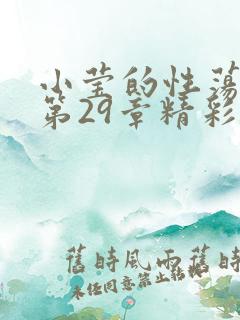 小莹的性荡
第29章精彩
舊時風雨舊時
未经同意禁止转载